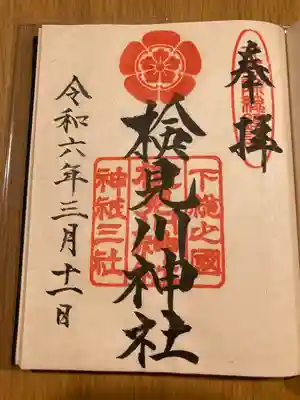 奉拝
検見川神社
下總之國
神社三社
令和六年三月十一日